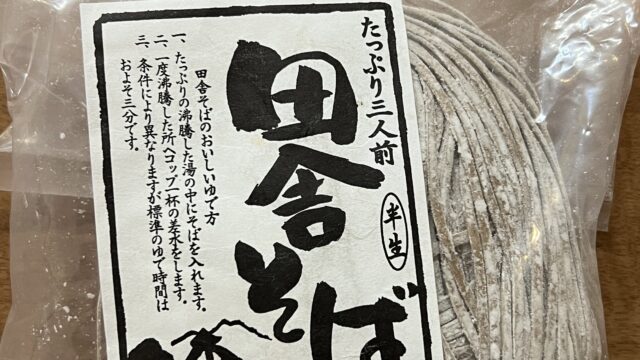 たっぷり三人前
半生
田舎そば
田舎そばのおいしいゆで方
一、たっぷりの沸騰した湯の中にそばを入れます。
二、一度沸騰した所へコップ一杯の差水をします。
三、条件により異なりますが標準のゆで時間は
およそ三分です。